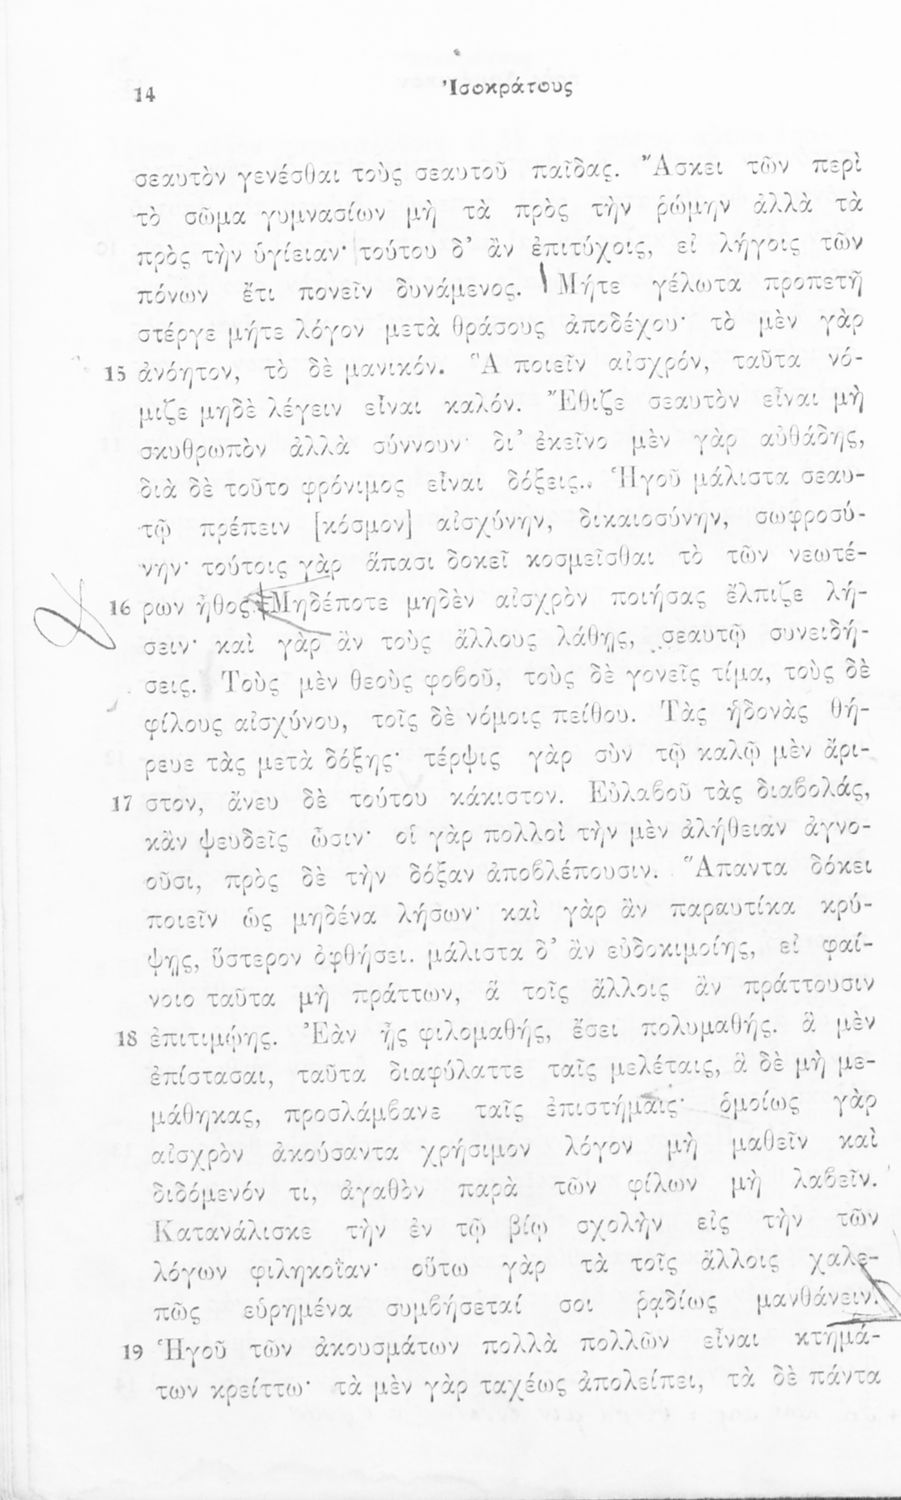 14
Ἰσοκράτους
σεαυτὸν γενέσθαι τοὺς σεαυτοῦ παῖδας. Ἄσκει τῶν περὶ
τὸ σῶμα γυμνασίων μὴ τὰ πρὸς τὴν ῥώμην ἀλλὰ τὰ
πρὸς τὴν ὑγίειαν· τούτου δ’ ἂν ἐπιτύχοις, εἰ λήγοις τῶν
πόνων ἔτι πονεῖν δυνάμενος. Μήτε γέλωτα προπετῆ
στέργε μήτε λόγον μετὰ θράσους ἀποδέχου· τὸ μὲν γὰρ
15 ἀνόητον, τὸ δὲ μανικόν. Ἃ ποιεῖν αἰσχρόν, ταῦτα νό-
μιζε μηδὲ λέγειν εἶναι καλόν. Ἔθιζε σεαυτὸν εἶναι μὴ
σκυθρωπὸν ἀλλὰ σύννουν· δι’ ἐκεῖνο μὲν γὰρ αὐθάδης,
διὰ δὲ τοῦτο φρόνιμος εἶναι δόξεις. Ἡγοῦ μάλιστα σεαυ-
τῷ πρέπειν [κόσμον] αἰσχύνην, δικαιοσύνην, σωφροσύ-
νην· τούτοις γὰρ ἅπασι δοκεῖ κοσμεῖσθαι τὸ τῶν νεωτέ-
16 ρων ἦθος. Μηδέποτε μηδὲν αἰσχρὸν ποιήσας ἔλπιζε λή-
σειν· καὶ γὰρ ἂν τοὺς ἄλλους λάθῃς, σεαυτῷ συνειδή-
σεις. Τοὺς μὲν θεοὺς φοβοῦ, τοὺς δὲ γονεῖς τίμα, τοὺς δὲ
φίλους αἰσχύνου, τοῖς δὲ νόμοις πείθου. Τὰς ἡδονὰς θή-
ρευε τὰς μετὰ δόξης· τέρψις γὰρ σὺν τῷ καλῷ μὲν ἄρι-
17 στον, ἄνευ δὲ τούτου κάκιστον. Εὐλαβοῦ τὰς διαβολάς,
κἂν ψευδεῖς ὦσιν· οἱ γὰρ πολλοὶ τὴν μὲν ἀλήθειαν ἀγνο-
οῦσι, πρὸς δὲ τὴν δόξαν ἀποβλέπουσιν. Ἅπαντα δόκει
ποιεῖν ὡς μηδένα λήσων· καὶ γὰρ ἂν παραυτίκα κρύ-
ψῃς, ὕστερον ὀφθήσει. μάλιστα δ’ ἂν εὐδοκιμοίης, εἰ φαί-
νοιο ταῦτα μὴ πράττων, ἃ τοῖς ἄλλοις ἂν πράττουσιν
18 ἐπιτιμῴης. Ἐὰν ᾖς φιλομαθής, ἔσει πολυμαθής. ἃ μὲν
ἐπίστασαι, ταῦτα διαφύλαττε ταῖς μελέταις, ἃ δὲ μὴ με-
μάθηκας, προσλάμβανε ταῖς ἐπιστήμαις· ὁμοίως γὰρ
αἰσχρὸν ἀκούσαντα χρήσιμον λόγον μὴ μαθεῖν καὶ
διδόμενόν τι, ἀγαθὸν παρὰ τῶν φίλων μὴ λαβεῖν.
Κατανάλισκε τὴν ἐν τῷ βίῳ σχολὴν εἰς τὴν τῶν
λόγων φιληκοΐαν· οὕτω γὰρ τὰ τοῖς ἄλλοις χαλε-
πῶς εὑρημένα συμβήσεταί σοι ῥᾳδίως μανθάνειν.
19 Ἡγοῦ τῶν ἀκουσμάτων πολλὰ πολλῶν εἶναι κτημά-
των κρείττω· τὰ μὲν γὰρ ταχέως ἀπολείπει, τὰ δὲ πάντα